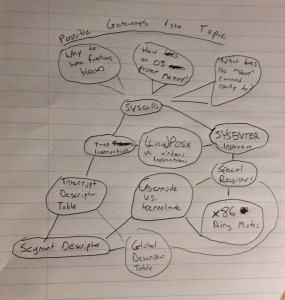 Possible Gateways into Topic
Why do
some functions
block?
How does
an OS
Protect Memory?
What does
the "
command
really do?
Syscalls
Trap
Instruction
(Linux) Posix
vs. Windows
SYSENTER
Instruction
Special
Registers
Interrupt
Descriptor
Table
Usermode
vs.
Kernelmode
x86
Ring Modes
Segment Descriptor
Global
Descriptor
Table